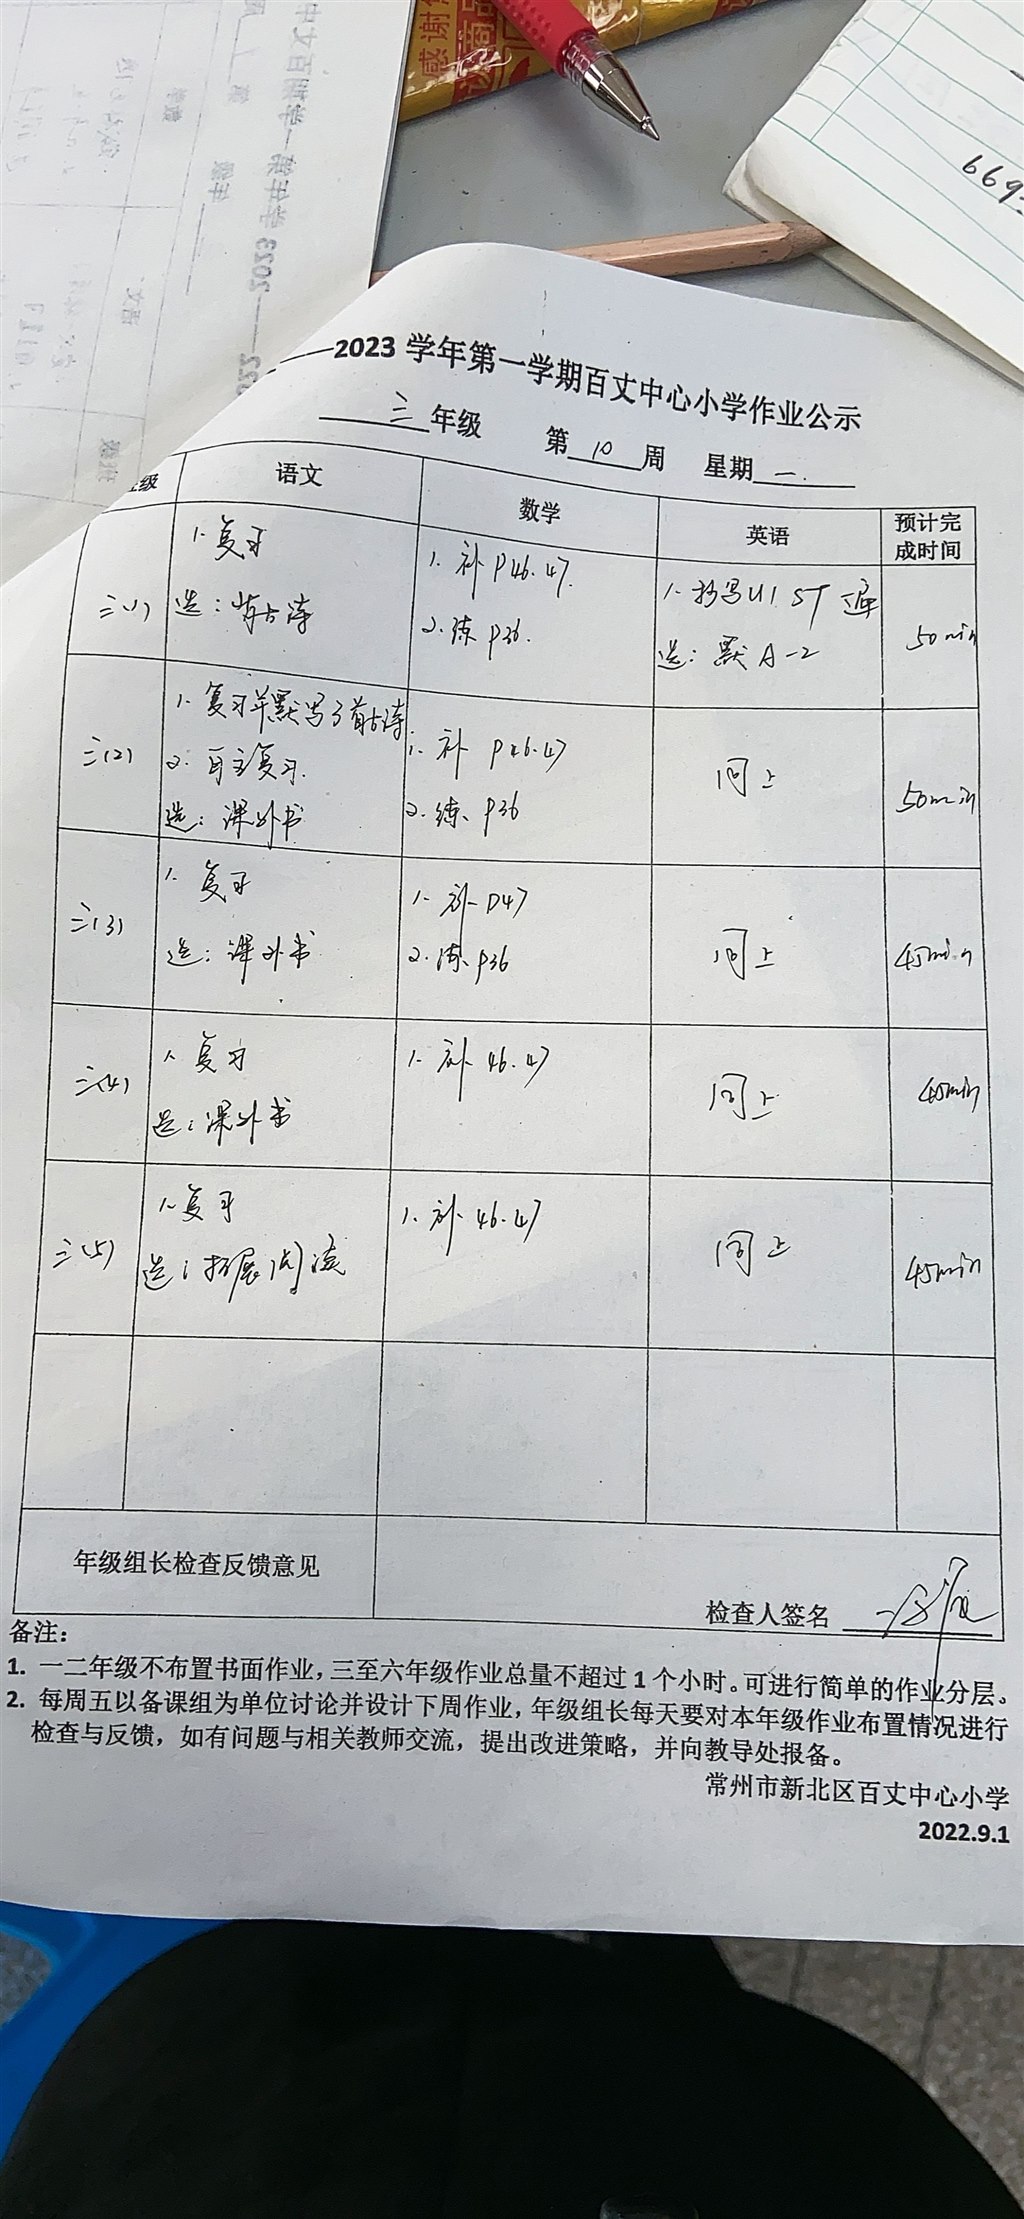 感谢
6693
——2023 学年第一学期百丈中心小学作业公示
三 年级 第 10 周 星期 一
级 语文 数学 英语 预计完成时间
三(1)
1. 复习
选：背古诗
1. 补 P46.47.
2. 练 P36.
1. 抄写U1 ST 一遍
选：默 A-2
50min
三(2)
1. 复习并默写3首古诗
2. 自主复习.
选：课外书
1. 补 P46.47
2. 练 P36
同上
50min
三(3)
1. 复习
选：课外书
1. 补 P47
2. 练 P36
同上
45min
三(4)
1. 复习
选：课外书
1. 补 46.47
同上
45min
三(5)
1. 复习
选：拓展阅读
1. 补 46.47
同上
45min
年级组长检查反馈意见
检查人签名
备注：
1. 一二年级不布置书面作业，三至六年级作业总量不超过 1 个小时。可进行简单的作业分层。
2. 每周五以备课组为单位讨论并设计下周作业，年级组长每天要对本年级作业布置情况进行
检查与反馈，如有问题与相关教师交流，提出改进策略，并向教导处报备。
常州市新北区百丈中心小学
2022.9.1